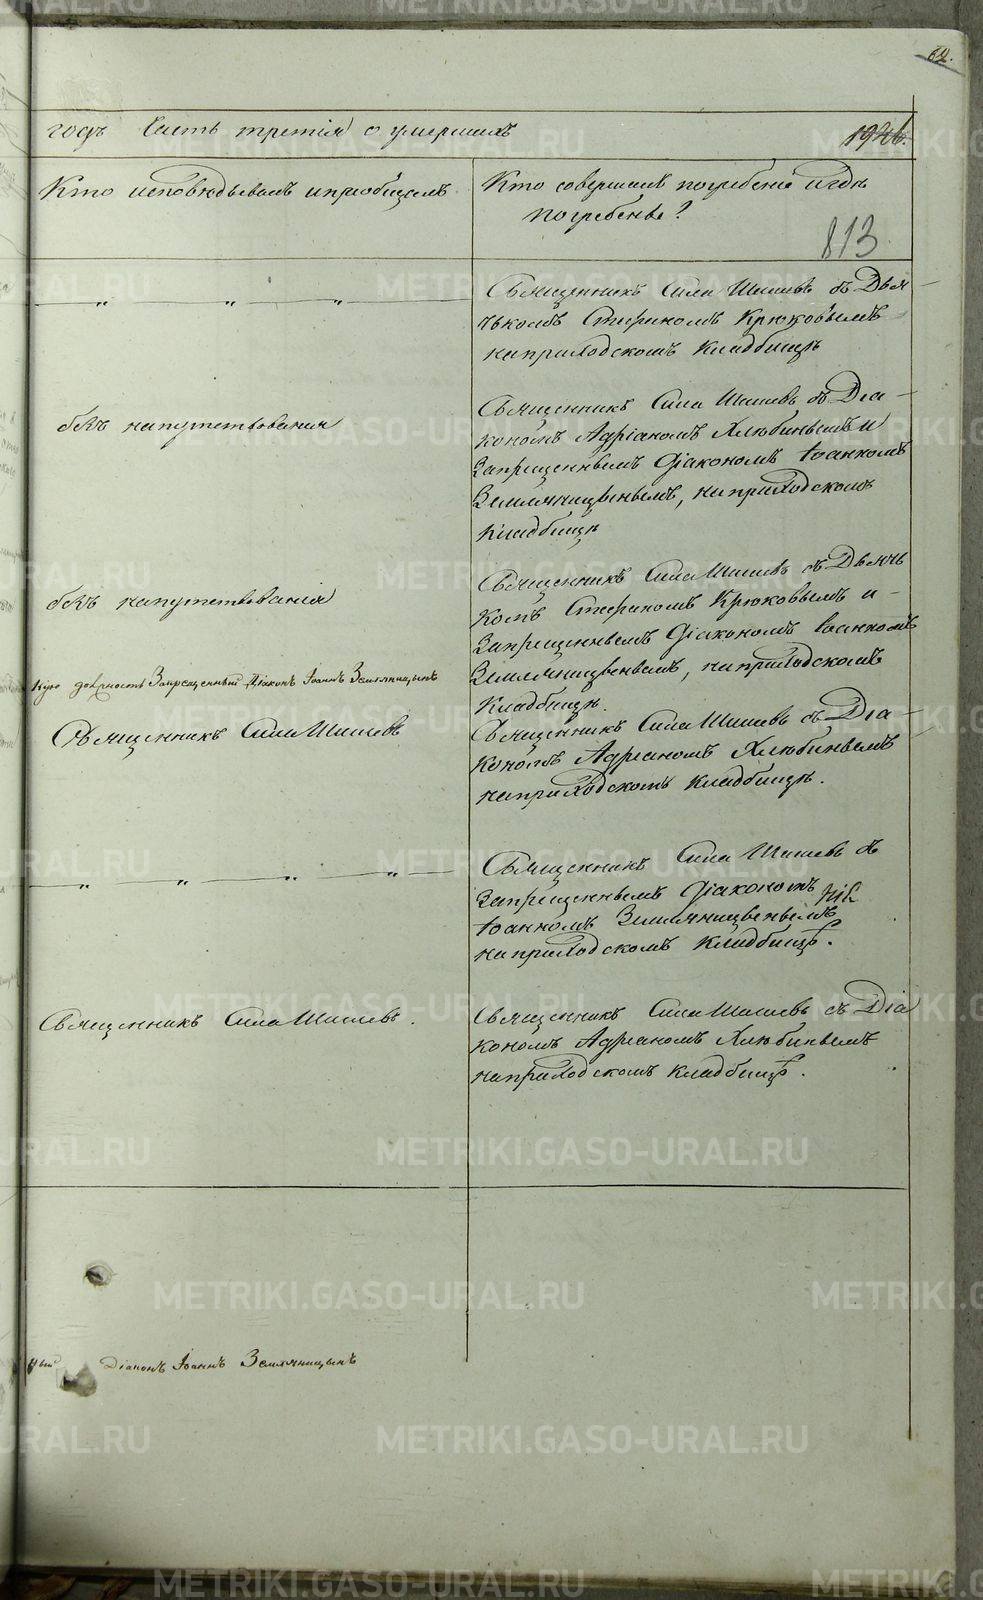 62.
годъ Часть третія о умершихъ
1946.
Кто исповѣдывалъ и пріобщалъ
Кто совершалъ погребеніе и гдѣ
погребены?
813
Священникъ Сила Шишевъ съ Дья
чькомъ Стефаномъ Крюковымъ
на приходскомъ кладбищѣ
безъ напутствованія
Священникъ Сила Шишевъ съ Діа-
кономъ Адріаномъ Хлюбинымъ и
Запрещеннымъ Діакономъ Іоанномъ
Земляницынымъ, на приходскомъ
кладбищѣ
безъ напутствованія
Священникъ Сила Шишевъ съ Дьячь
комъ Стефаномъ Крюковымъ и
Запрещеннымъ Діакономъ Іоанномъ
Земляницынымъ, на приходскомъ
кладбищѣ.
должность Запрещенный Діаконъ Іоаннъ Земляницынъ
Священникъ Сила Шишевъ
Священникъ Сила Шишевъ съ Діа-
кономъ Адріаномъ Хлюбинымъ
на приходскомъ кладбищѣ.
Священникъ Сила Шишевъ съ
Запрещеннымъ Діакономъ
Іоанномъ Земляницынымъ
на приходскомъ кладбищѣ.
Священникъ Сила Шишевъ.
Священникъ Сила Шишевъ съ Діа
кономъ Адріаномъ Хлюбинымъ
на приходскомъ кладбищѣ.
Діаконъ Іоаннъ Земляницынъ
METRIKI.GASO-URAL.RU